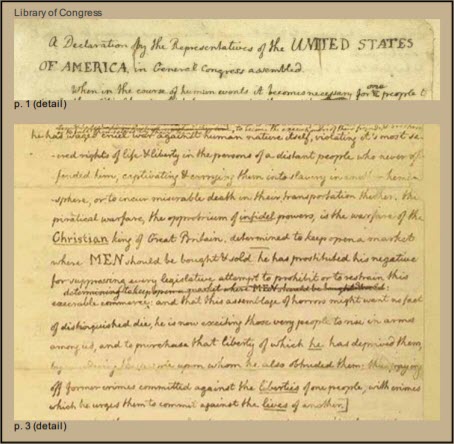 Library of Congress
A Declaration by the Representatives of the UNITED STATES
OF AMERICA, in General Congress assembled.
When in the course of human events it becomes necessary for one people to
p. 1 (detail)
he has waged cruel war against human nature itself, violating it's most sa-
-cred rights of life & liberty in the persons of a distant people who never of-
fended him, captivating & carrying them into slavery in another hemi-
sphere, or to incur miserable death in their transportation thither. this
piratical warfare, the opprobrium of infidel powers, is the warfare of the
Christian king of Great Britain. determined to keep open a market
where MEN should be bought & sold. he has prostituted his negative
for suppressing every legislative attempt to prohibit or to restrain this
determining to keep open a market where MEN should be bought & sold
execrable commerce: and that this assemblage of horrors might want no fact
of distinguished die, he is now exciting those very people to rise in arms
among us, and to purchase that liberty of which he has deprived them,
by murdering the people upon whom he also obtruded them: thus paying
off former crimes committed against the liberties of one people, with crimes
which he urges them to commit against the lives of another.]
p. 3 (detail)